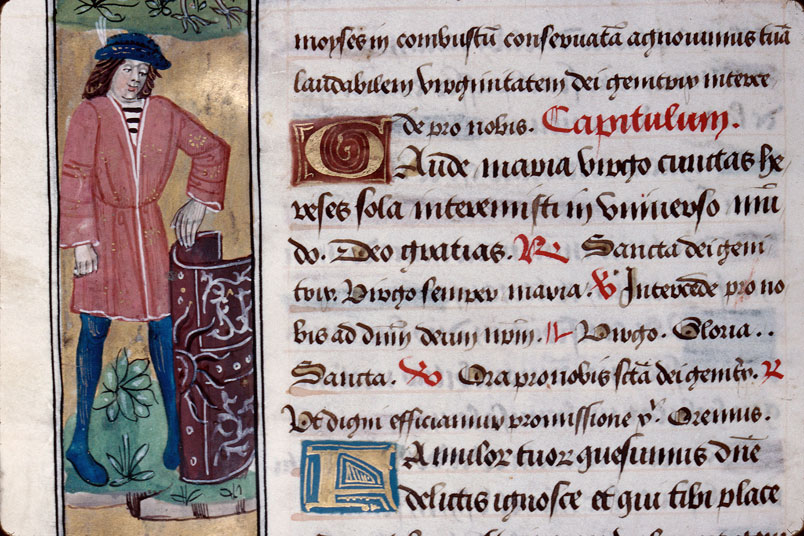 moyses in combustū conseruatā agnouimus tuā
laudabilem virginitatem dei genitrix interce
de pro nobis. Capitulum.
Gaude maria virgo cunctas he
reses sola interemisti in vniuerso mū
do. Deo gratias. R Sancta dei geni
trix. Virgo semper maria. V Intercede pro no
bis ad dnm deum nrm. Virgo. Gloria..
Sancta. V Ora pro nobis sctā dei genitrx. R
Vt digni efficiamur promissione xp. Oremus.
Famulor tuor quesumus dne
delictis ignosce et qui tibi place